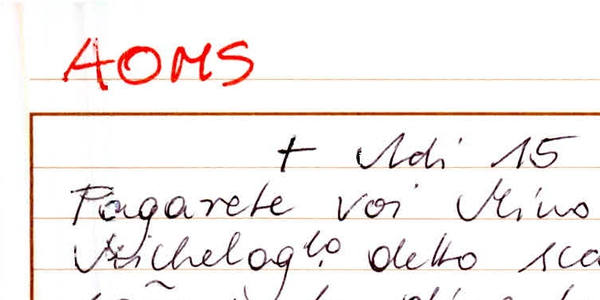 AOMS
+ Adi 15
Pagarete voi Mino
Michelaglo detto sca